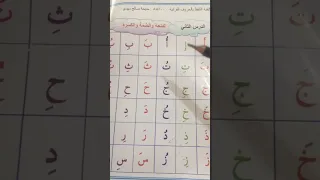 الدرس الثاني الفتحة والضمة والكسرة
أَ إِ أُ بَ بِ
تَ تِ تُ ثَ ثِ
جَ جِ جُ حَ حِ
خَ خِ خُ دَ دِ
ذَ ذِ ذُ رَ رِ
زَ زِ زُ سَ سِ